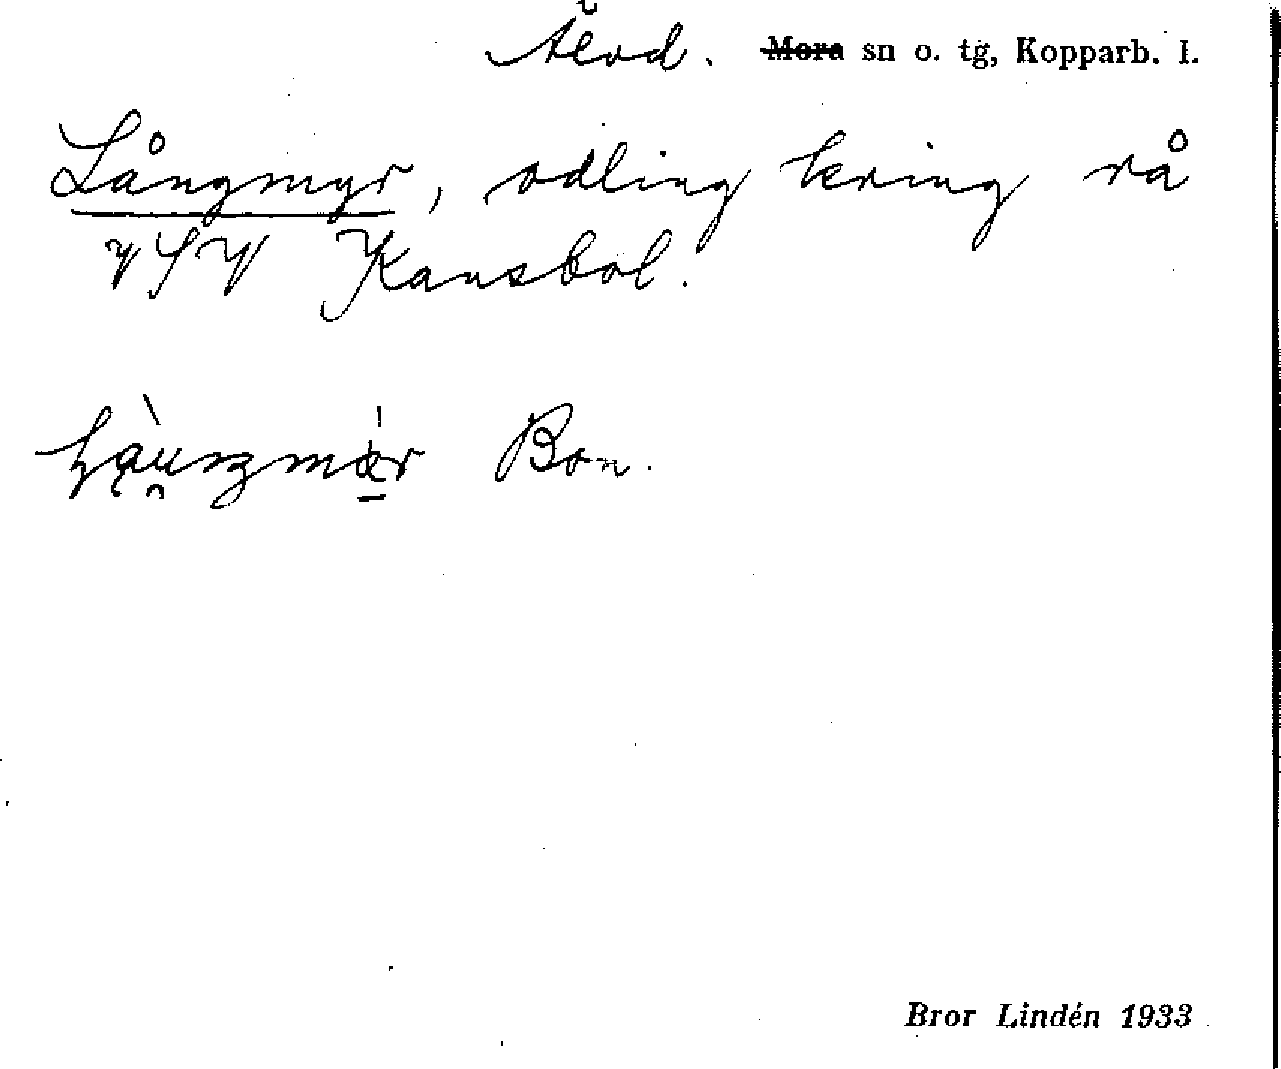 Älvd. Mora sn o. tg, Kopparb. l.
Långmyr, odling kring rå
VSV Kansbol.
Bon.
Bror Lindén 1933